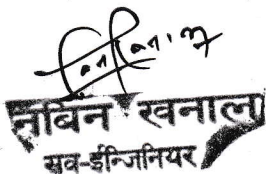 नविन खनाल
सव-ईन्जिनियर